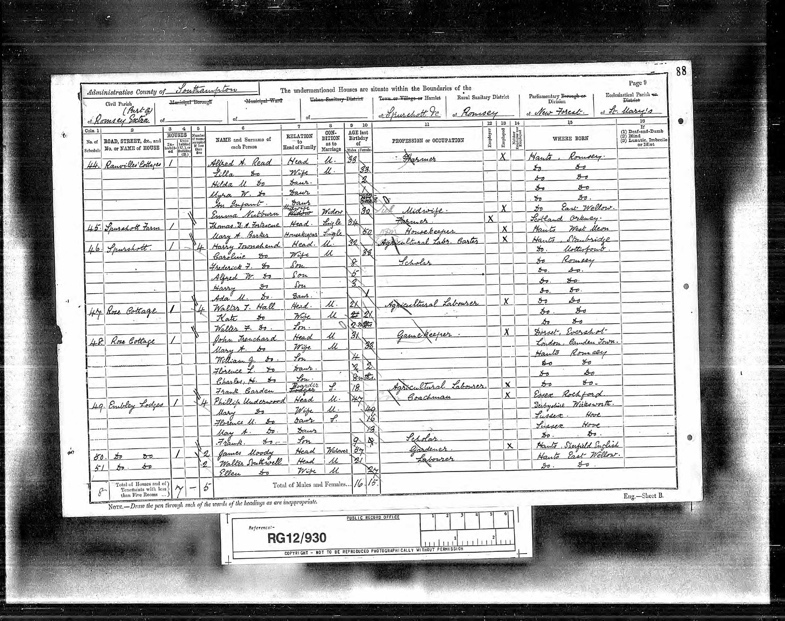 88
Administrative County of Southampton
The undermentioned Houses are situate within the Boundaries of the
Page 9
Civil Parish
Municipal Borough
Municipal Ward
Urban Sanitary District
Town or Village or Hamlet
Rural Sanitary District
Parliamentary Borough or Division
Ecclesiastical Parish or District
(Part of)
of Romsey Extra
of
of
of
of Spursholt &c
of Romsey
of New Forest
of St. Mary's
Cols. 1 2 3 4 5 6 7 8 9 10 11 12 13 14 15 16
No. of Schedule
ROAD, STREET, &c., and No. or NAME of HOUSE
HOUSES
NAME and Surname of each Person
RELATION to Head of Family
CONDITION as to Marriage
AGE last Birthday of
PROFESSION or OCCUPATION
Employer
Employed
WHERE BORN
(1) Deaf-and-Dumb
(2) Blind
(3) Lunatic, Imbecile or Idiot
44 Ranvilles Cottages 1 Alfred A. Read Head M. 38 Farmer X Hants Romsey
Ella Do Wife M. 38 Do Do
Hilda M Do Daur. 2 Do Do
Myra W. Do Daur. 1 Do Do
An Infant Daur Do Do
Emma Widow 30 Midwife X Do East Wellow
45 Spursholt Farm 1 Thomas D. A Fortescue Head Single 34 Farmer X Scotland Orkney
Mary A Parker Housekeeper Single 50 Housekeeper X Hants West Meon
46 Spursholt 1 4 Harry Townsend Head M. 32 Agricultural Labr. Carter X Hants Stanbridge
Caroline Do Wife M 38 Do
Frederick F. Do Son 8 Scholar Do Romsey
Alfred W. Do Son 5 Do Do
Harry Do Son 3 Do Do
Ada M. Do Daur. 1 Do Do
47 Rose Cottage 1 4 Walter T. Hall Head M. 21 Agricultural Labourer X Do Do
Kate Do Wife M 21 Do Do
Walter F. Do Son Do Do
48 Rose Cottage 1 John Trenchard Head M 31 Gamekeeper X Dorset Evershot
Mary A Do Wife M 38 London Camden Town
William G. Do Son 4 Hants Romsey
Florence L. Do Daur. 2 Do Do
Charles H. Do Son Do Do
Frank Carden Boarder S. 18 Agricultural Labourer X Do Do
49 Embley Lodges 1 4 Phillip Underwood Head M. 47 Coachman X Essex Rochford
Mary Do Wife M 49 Derbyshire Wirksworth
Florence M Do Daur S. 16 Sussex Hove
May A. Do Daur 13 Sussex Hove
Frank Do Son 9 Scholar Do Do
50 Do Do 1 2 James Moody Head Widower 37 Gardener X Hants
51 Do Do 2 Walter Southwell Head M 21 Labourer Hants East Wellow
Ellen Do Wife M 22 Do Do
8 Total of Houses and of Tenements with less than Five Rooms 7 – 5 Total of Males and Females... 16 15
NOTE.—Draw the pen through such of the words of the headings as are inappropriate.
Eng.—Sheet B.
PUBLIC RECORD OFFICE
Reference:-
RG12/930
1 2 3 4 5 6
1 2
COPYRIGHT - NOT TO BE REPRODUCED PHOTOGRAPHICALLY WITHOUT PERMISSION